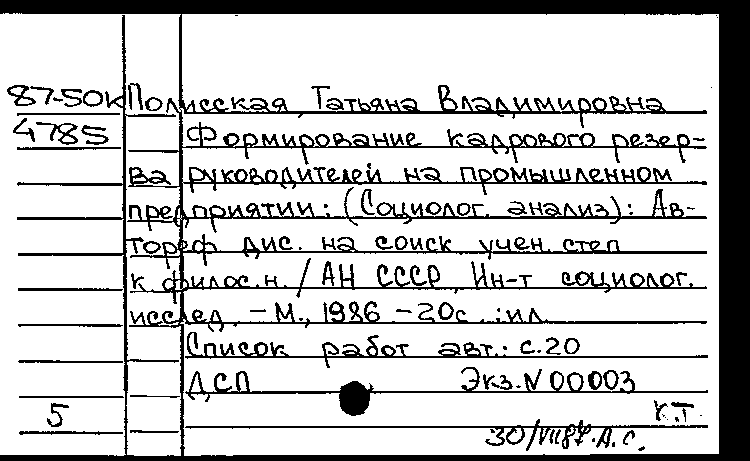 87-50к Полисская, Татьяна Владимировна
4785 Формирование кадрового резер-
ва руководителей на промышленном
предприятии: (Социолог. анализ): Ав-
тореф дис. на соиск учен. степ
к филос.н. / АН СССР, Ин-т социолог.
исслед. - М., 1986 - 20с. :ил.
Список работ авт.: с.20
ДСП Экз.N 00003
5 К.Т.
30/VII87.А.С.